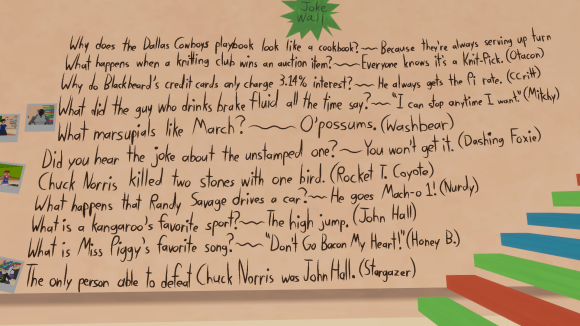 Joke
Wall
Why does the Dallas Cowboys playbook look like a cookbook?~~ Because they're always serving up turn
What happens when a knitting club wins an auction item?~~ Everyone knows it's a Knit-Pick. (Otacon)
Why do Blackbeard's credit cards only charge 3.14% interest?~~ He always gets the Pi rate. (CCritt)
What did the guy who drinks brake fluid all the time say?~~ "I can stop anytime I want." (Mitchy)
What marsupials like March?~~ O'possums. (Washbear)
Did you hear the joke about the unstamped one?~~ You won't get it. (Dashing Foxie)
Chuck Norris killed two stones with one bird. (Rocket T. Coyote)
What happens that Randy Savage drives a car?~~ He goes Mach-o 1! (Nurdy)
What is a kangaroo's favorite sport?~~ The high jump. (John Hall)
What is Miss Piggy's favorite song?~~ "Don't Go Bacon My Heart!" (Honey B.)
The only person able to defeat Chuck Norris was John Hall. (Stargazer)